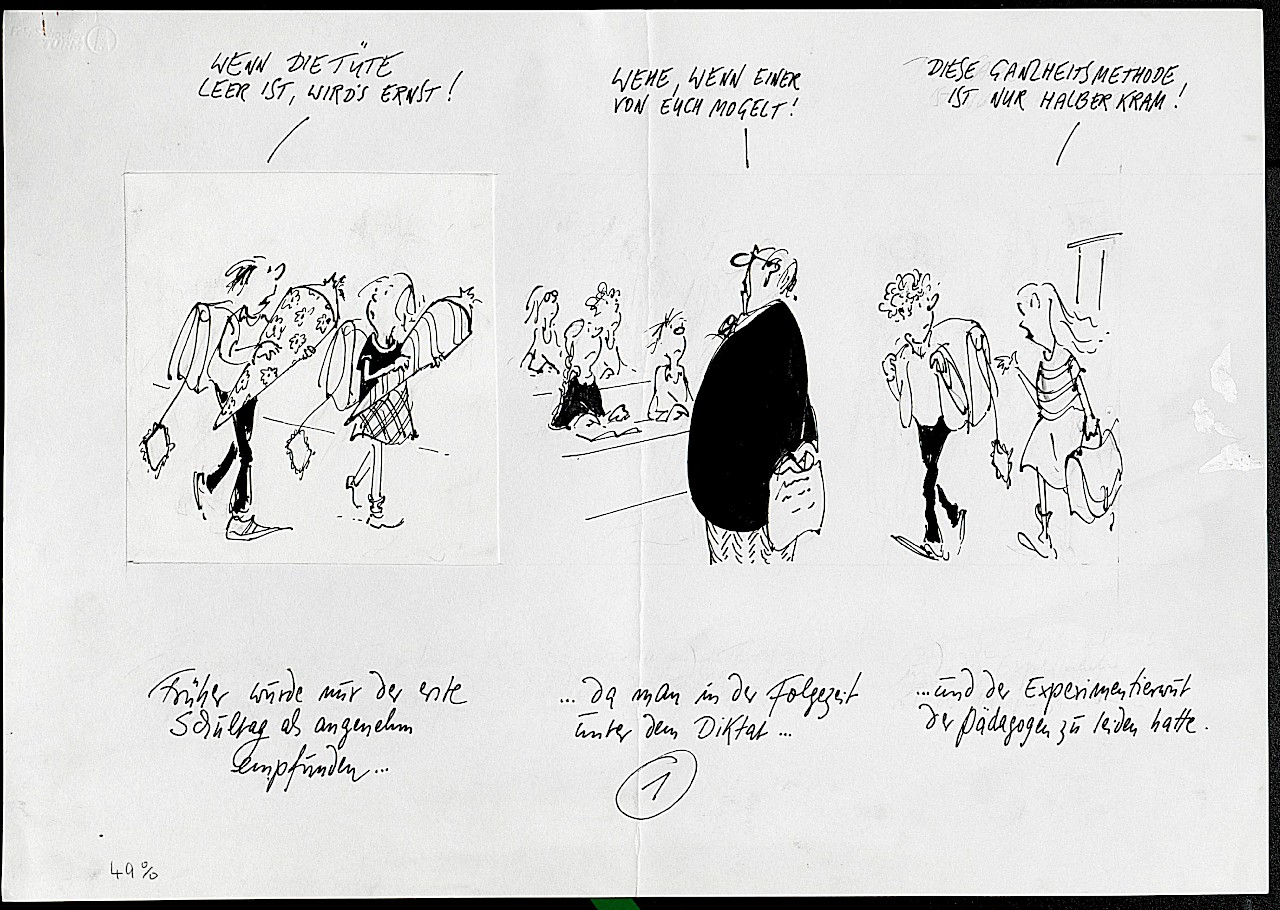 WENN DIE TÜTE
LEER IST, WIRD'S ERNST!
WEHE, WENN EINER
VON EUCH MOGELT!
DIESE GANZHEITSMETHODE
IST NUR HALBER KRAM!
Früher wurde nur der erste
Schultag als angenehm
empfunden...
...da man in der Folgezeit
unter dem Diktat...
...und der Experimentierwut
der Pädagogen zu leiden hatte.
1
49%